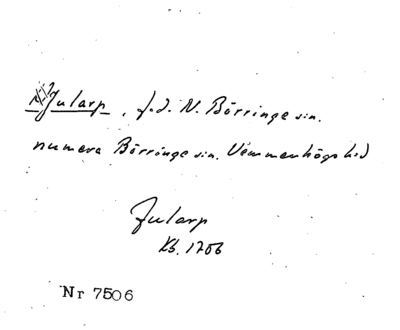 Jularp, f.d. N. Börringe sn.
numera Börringe sn. Vemmenhögs hd
Jularp
Kb. 1706
Nr 7506